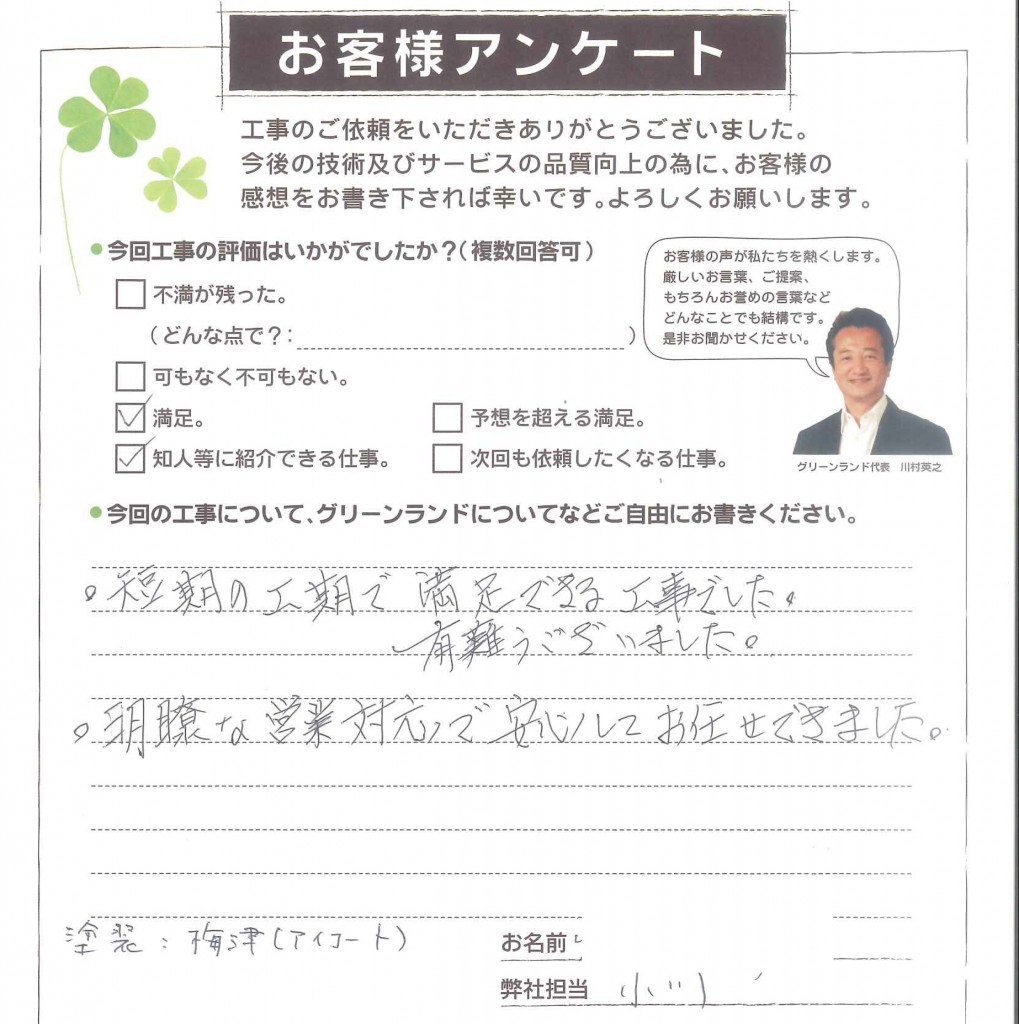 お客様アンケート
工事のご依頼をいただきありがとうございました。
今後の技術及びサービスの品質向上の為に、お客様の
感想をお書き下されば幸いです。よろしくお願いします。
●今回工事の評価はいかがでしたか？（複数回答可）
不満が残った。
（どんな点で？：　）
可もなく不可もない。
満足。
予想を超える満足。
知人等に紹介できる仕事。
次回も依頼したくなる仕事。
お客様の声が私たちを熱くします。
厳しいお言葉、ご提案、
もちろんお誉めの言葉など
どんなことでも結構です。
是非お聞かせください。
グリーンランド代表　川村英之
●今回の工事について、グリーンランドについてなどご自由にお書きください。
。短期の工期で満足できる工事でした。
有難うございました。
。明瞭な営業対応で安心してお任せできました。
塗装：梅津（アイコート）
お名前
弊社担当　小川